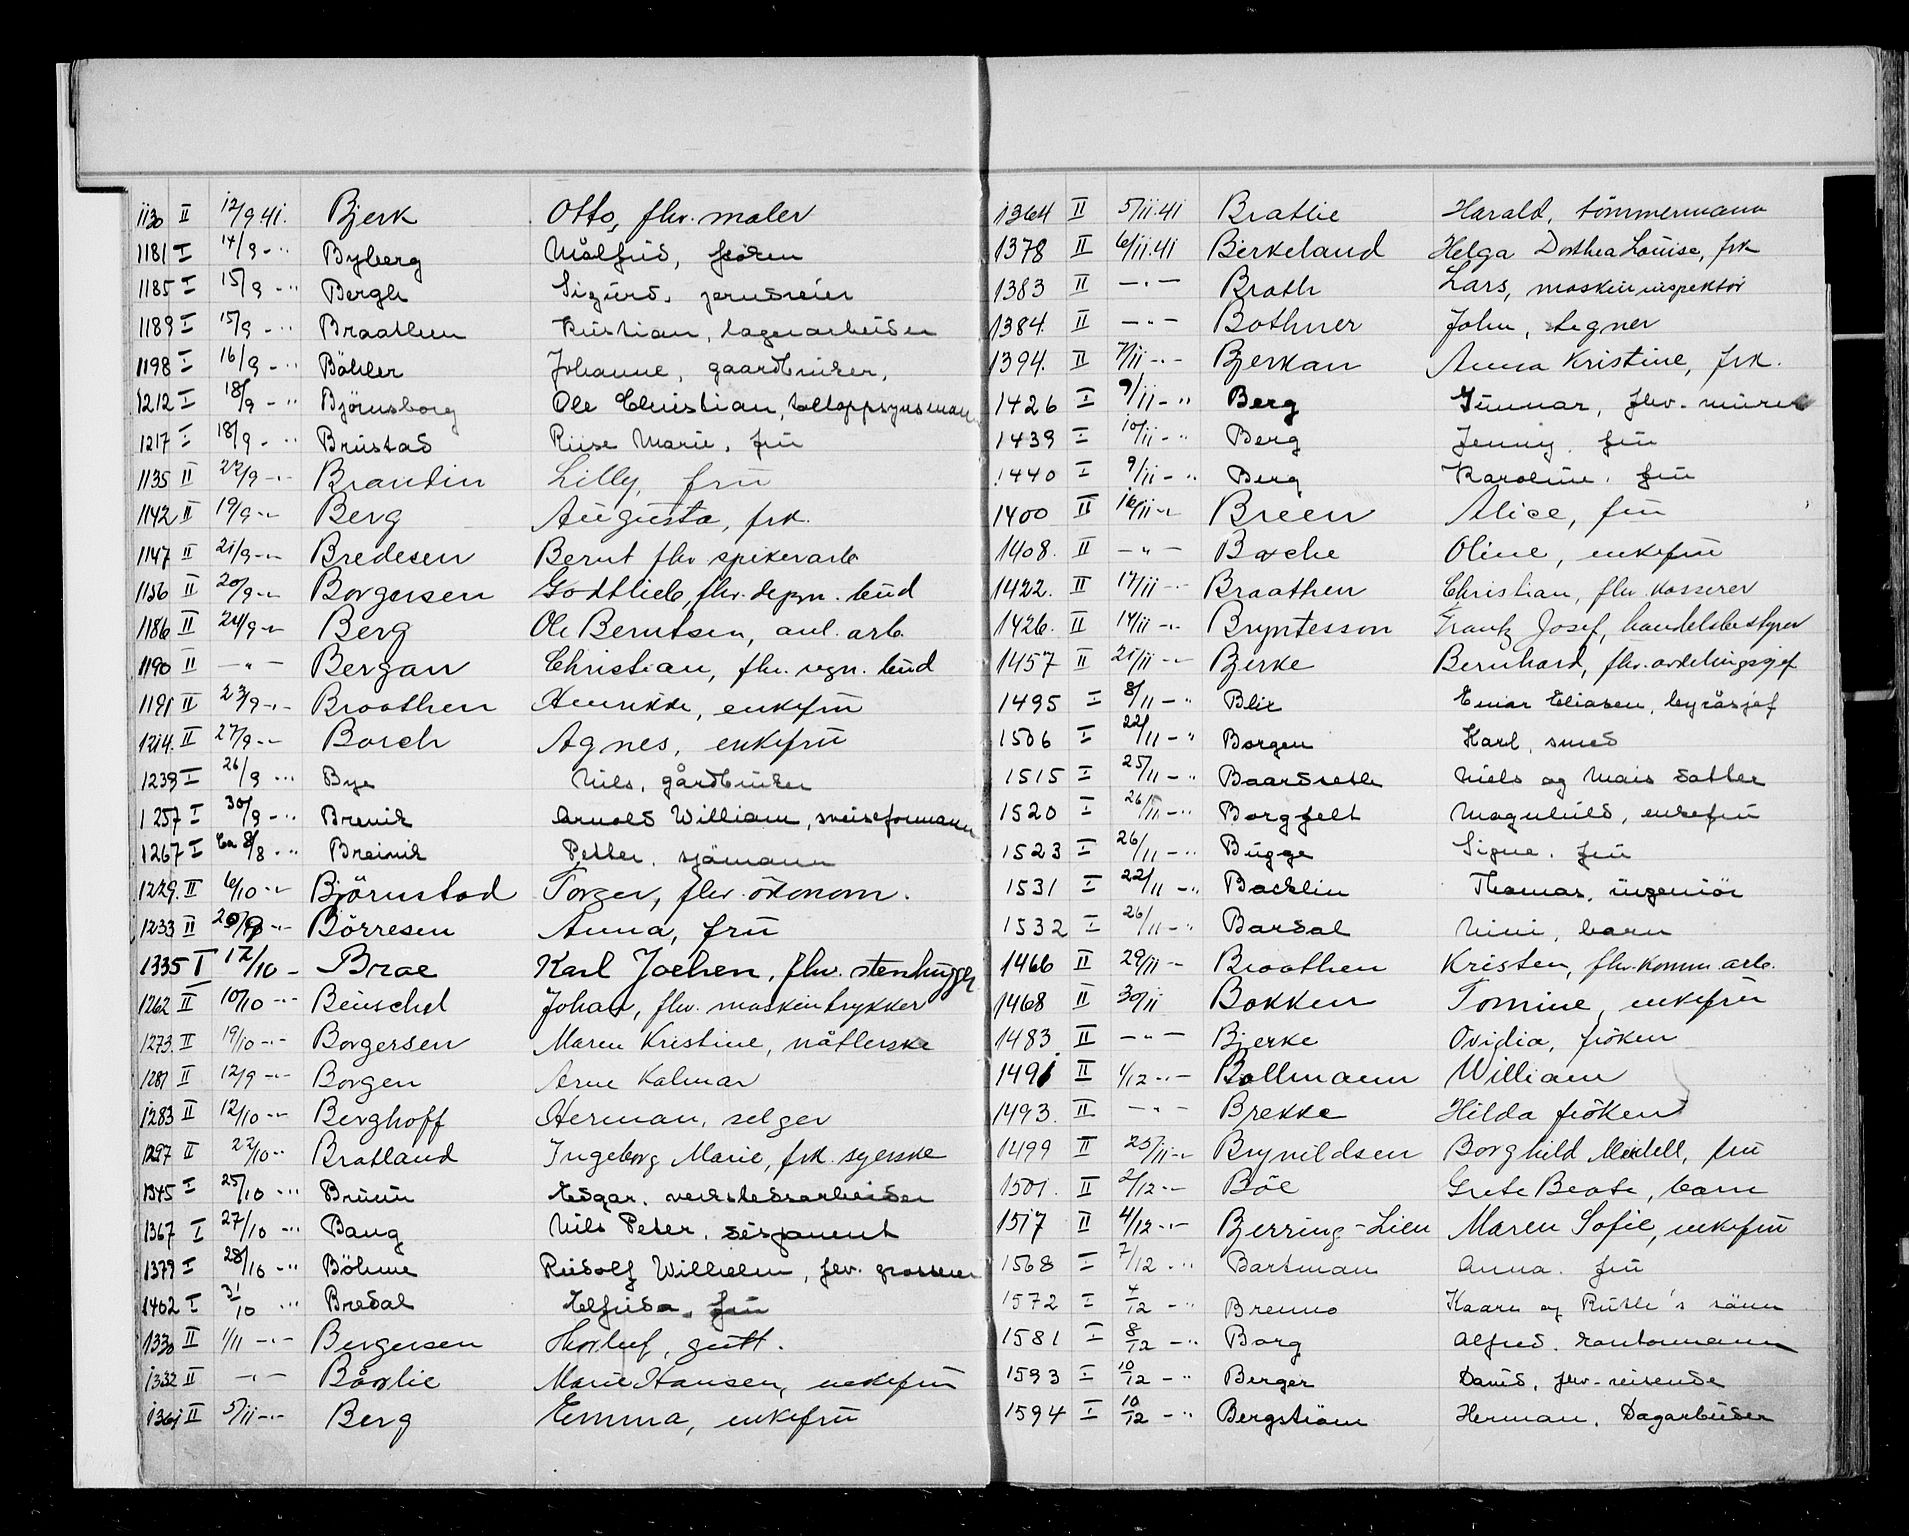 1130 II 12/9.41. Bjerk Otto, fhv. maler
1181 I 14/9 - " Byberg Målfrid, frøken
1185 I 15/9 - " Bergh Sigurd, jerndreier
1189 I 15/9 - " Braathen Kristian, lagerarbeider
1198 I 16/9 - " Böhler Johanne, gaardbruker,
1212 I 18/9 - " Björnsborg Ole Christian, toltoppsynsmann
1217 I 18/9 - " Brustad Riise Marie, fru
1135 II 22/9 -"- Brandin Lilly, fru
1142 II 19/9 -"- Berg Augusta, frk.
1147 II 21/9 -"- Bredesen Bernt fhv spikerarb
1156 II 20/9 -"- Borgersen Godtlieb, fhv. depm. bud
1186 II 24/9 -"- Berg Ole Berntsen, anl. arb.
1190 II -"- Bergan Christian, fhv. regn. bud
1191 II 23/9 -"- Braathen Henrikke, enkefru
1214. II 27/9 -"- Borch Agnes, enkefru
1239 I 26/9 - " Bye Nils, gårdbruker
1257 I 30/9 - " Brevik Arnold William, sveiseformann
1267 I Ca 8/8 - " Breivik Petter, sjömann
1229. II 6/10 -"- Björnstad Torger, fhv. ökonom.
1233 II 20/9 -"- Börresen Anna, fru
1335 I 12/10 - Brae Karl Jochen, fhv. stenhugger
1262 II 10/10 -"- Beuschel Johan, fhv. maskintrykker
1273. II 19/10 -"- Borgersen Maren Kristine, nåtlerske
1281 II 12/9 -"- Borgen Arne Kalmar
1283 II 12/10 -"- Berghoff Herman, selger
1297 II 22/10 -"- Bratland Ingeborg Marie, frk. syerske
1345 I 25/10 - " Bruun Edgar, verkstedsarbeider
1367 I 27/10 - " Baug Nils Peter, disponent
1379 I 28/10 - " Böhme Rudolf Wilhelm, fhv. grosserer
1402 I 31/10 - " Bredal Elfrida, fru
1330 II 1/11 -"- Bergersen Thorluf, gutt.
1332 II -"- Bårlie Marie Hansen, enkefru
1361 II 5/11 -"- Berg Emma, enkefru
1364 II 5/11.41 Bratlie Harald, tömmermann
1378 II 6/11.41 Birkeland Helga Dorthea Louise, frk
1383 II -"- Brath Lars, maskininspektör
1384. II -"- Bothner John, tegner
1394. II 7/11 -"- Bjerkan Anna Kristine, frk.
1426 I 9/11 - " Berg Gunnar, fhv. murer
1439 I 10/11 - " Berg Jenny, fru
1440 I 9/11 - " Berg Karoline, fru
1400 II 16/11 -"- Breen Alice, fru
1408. II -"- Bache Oline, enkefru
1422. II 17/11 -"- Braathen Christian, fhv. kasserer
1426. II 14/11 -"- Bryntesson Frantz Josef, handelsbestyrer
1457 II 21/11 -"- Bjerke Bernhard, fhv. avdelingssjef
1495 I 8/11 - " Blix Einar Eliasen, byråsjef
1506 I 22/11 - " Borgen Karl, smed
1515 I 25/11 - " Baardseth Niels og Mais datter
1520 I 26/11 - " Borgfelt Magnhild, enkefru
1523 I 26/11 - " Bugge Signe, fru
1531 I 22/11 - " Backlin Thomas, ingeniör
1532 I 26/11 - " Bardal Nini, barn
1466 II 29/11 -"- Braathen Kristen, fhv. komm arb.
1468 II 30/11 Bakken Tomine, enkefru
1483 II -"- Bjerke Ovidia, fröken
1491 II 1/12 -"- Bollmann William
1493. II -"- Brekke Hilda fröken
1499 II 25/11 -"- Brynildsen Borghild Meidell, fru
1501. II 2/12 -"- Böe Grete Beate, barn
1517 II 4/12 -"- Bjerring-Lien Maren Sofie, enkefru
1568 I 7/12 - " Bartman Anna, fru
1572 I 4/12 - " Brenno Kaare og Ruth's sönn
1581 I 8/12 - " Borg Alfred, kontormann
1593 I 10/12 - " Berger David, fhv. reisende
1594 I 10/12 - " Bergström Herman, Dagarbeider